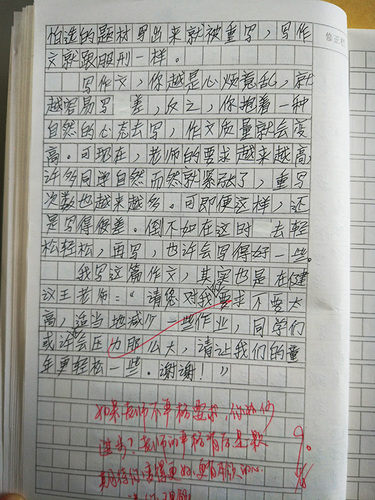 怕选的题材写出来就被重写，写作
文就跟服刑一样。
写作文，你越是心烦意乱，就
越容易写差，反之，你抱着一种
自然的心态去写，作文质量就会变
高。可现在，老师的要求越来越高，
许多同学自然而然就紧张了，重写
次数也越来越多。可即便这样，还
是写得很差。倒不如在这时去轻
松轻松，再写，也许会写得好一些。
我写这篇作文，其实也是在建
议王老师：“请您对我要求不要太
高，适当地减少一些作业，同学们
或许会压力那么大，请让我们的童
年更轻松一些。谢谢！”
如果老师不严格要求，你如何
进步？老师的严格背后是